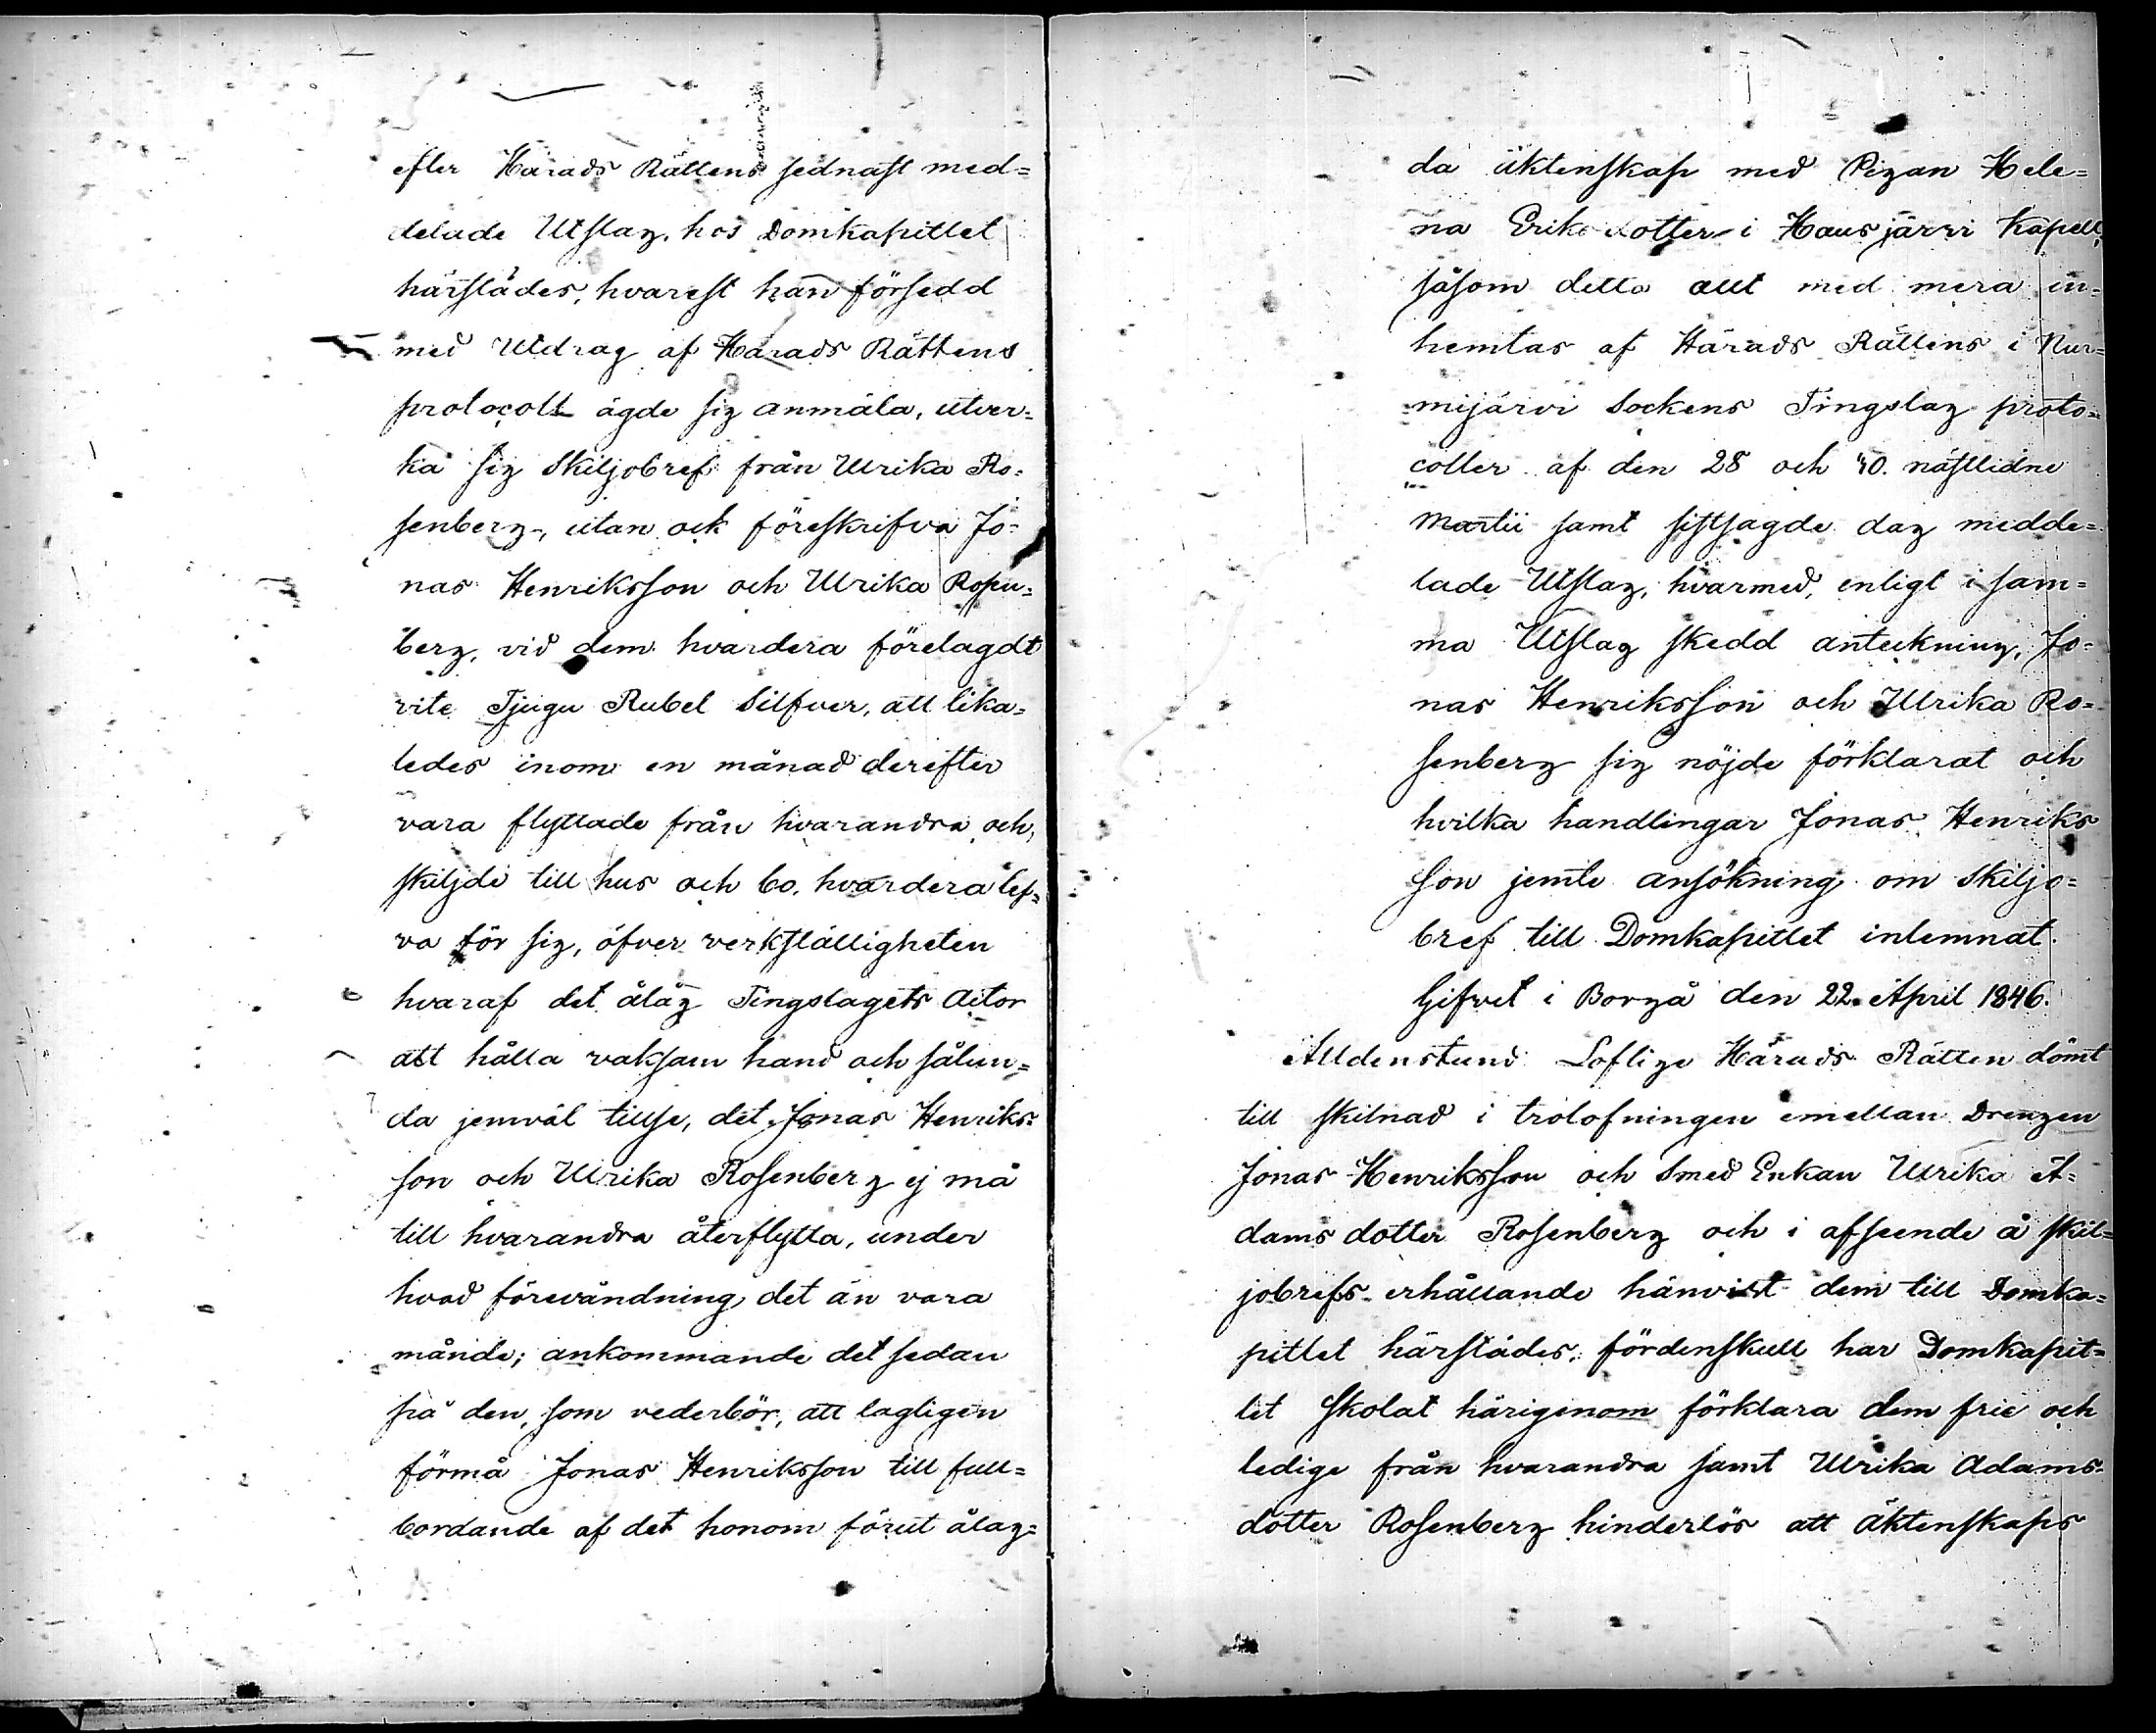 efter Härads Rättens sednast med=
delade Utslag, hos Domkapitlet
härstädes, hvarest han försedd
med Utdrag af Härads Rättens
protocoll ägde sig anmäla, utver=
ka sig Skiljobref från Ulrika Ro=
senberg, utan ock föreskrifva Jo=
nas Henriksson och Ulrika Rosen=
berg, vid dem hvardera förelagdt
vite Tjugu Rubel Silfver, att lika=
ledes inom en månad derefter
vara flyttade från hvarandra och,
skiljde till hus och bo, hvardera lef=
va för sig, öfver verkställigheten
hvaraf det ålåg Tingslagets Actor
att hålla vaksam hand och sålun=
da jemväl tillse, det Jonas Henriks=
son och Ulrika Rosenberg ej må
till hvarandra återflytta, under
hvad förevändning det än vara
månde; ankommande det sedan
på den, som vederbör, att lagligen
förmå Jonas Henriksson till full=
bordande af det honom förut ålag=
da äktenskap med Pigan Hele=
na Eriksdotter i Hausjärvi Kapell,
såsom detta allt med mera in=
hemtas af Härads Rättens i Nur=
mijärvi Sockens Tingslag proto=
coller af den 28 och 30. nästlidne
Martii samt sistsagde dag medde=
lade Utslag, hvarmed, enligt i sam=
ma Utslag skedd anteckning, Jo=
nas Henriksson och Ulrika Ro=
senberg sig nöjde förklarat och
hvilka handlingar Jonas Henriks
son jemte ansökning om Skiljo=
bref till Domkapitlet inlemnat.
Gifvet i Borgå den 22. April 1846.
Alldenstund Loflige Härads Rätten dömt
till skilnad i trolofningen emellan Drengen
Jonas Henriksson och Smed Enkan Ulrika A=
dams dotter Rosenberg och i afseende å skil=
jobrefs erhållande hänvist dem till Domka=
pitlet härstädes; fördenskull har Domkapit=
let skolat härigenom förklara dem frie och
ledige från hvarandra samt Ulrika Adams=
dotter Rosenberg hinderlös att äktenskaps